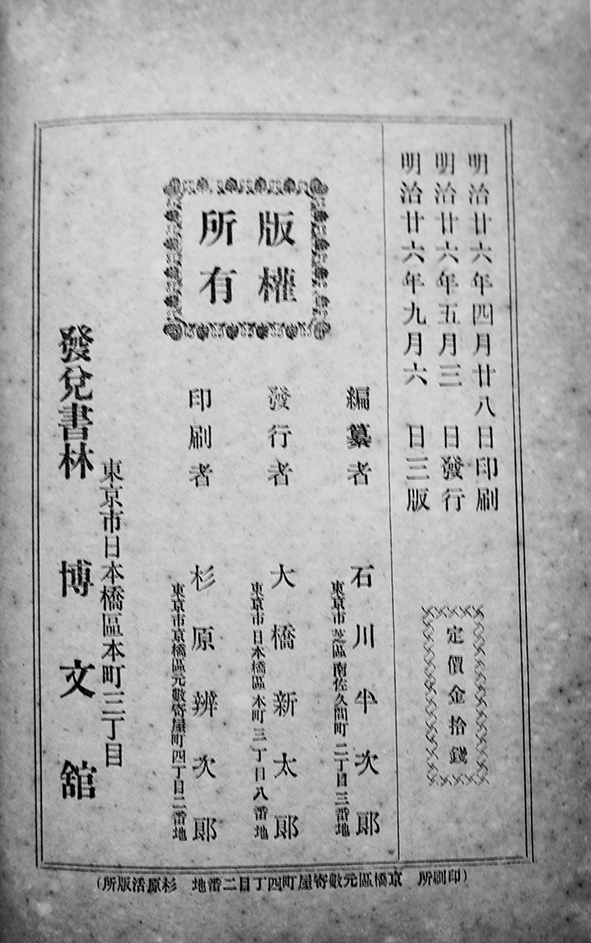 明治廿六年四月廿八日印刷
明治廿六年五月三日發行
明治廿六年九月六日三版
定價金拾錢
版權
所有
編纂者 石川半次郞
東京市芝區南佐久間町二丁目三番地
發行者 大橋新太郞
東京市日本橋區本町三丁目八番地
印刷者 杉原辨次郞
東京市京橋區元數寄屋町四丁目二番地
東京市日本橋區本町三丁目
發兌書林 博文舘
(印刷所 京橋區元數寄屋町四丁目二番地 杉原活版所)